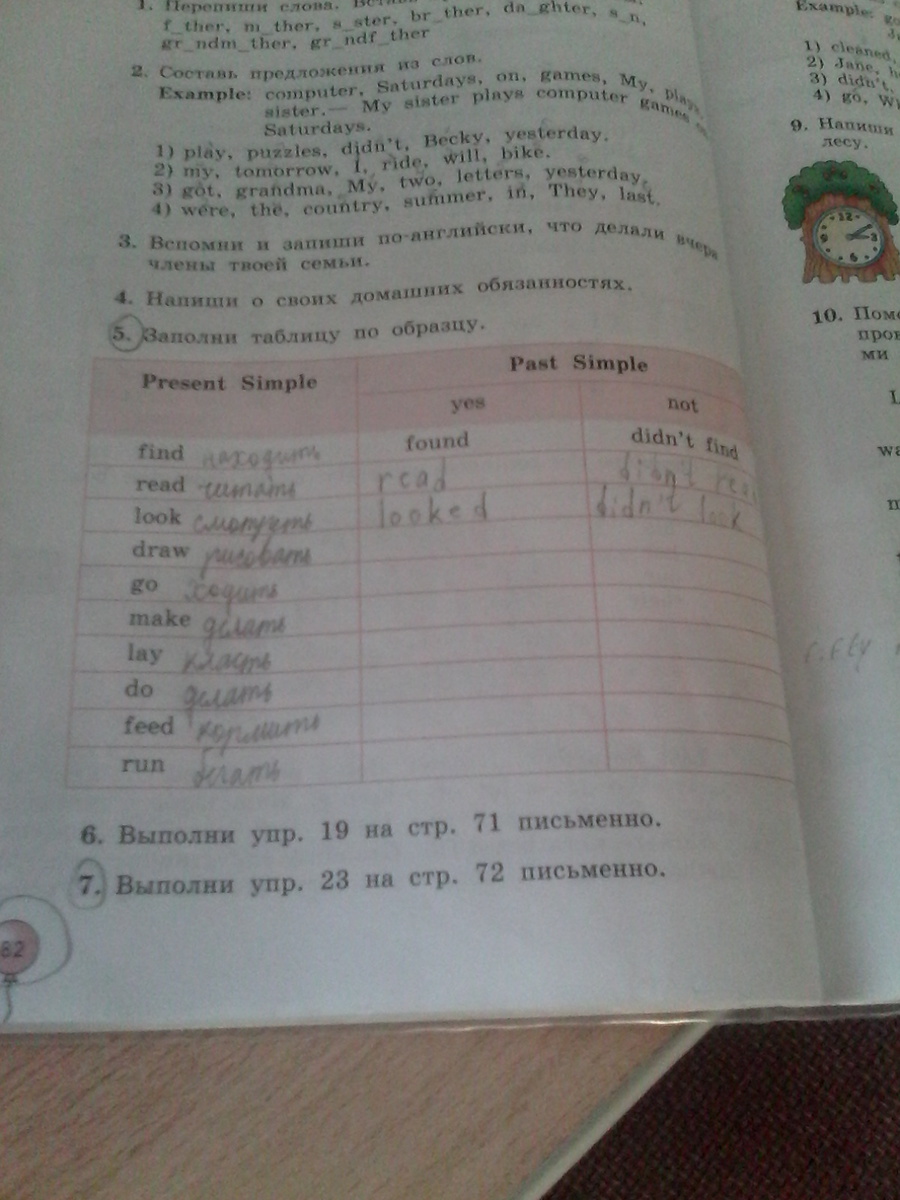 1. Перепиши слова.
f_ther, m_ther, s_ster, br_ther, da_ghter, s_n,
gr_ndm_ther, gr_ndf_ther
2. Составь предложения из слов.
Example: computer, Saturdays, on, games, My, plays,
sister.— My sister plays computer games on
Saturdays.
1) play, puzzles, didn't, Becky, yesterday.
2) my, tomorrow, I, ride, will, bike.
3) got, grandma, My, two, letters, yesterday.
4) were, the, country, summer, in, They, last.
3. Вспомни и запиши по-английски, что делали вчера
члены твоей семьи.
4. Напиши о своих домашних обязанностях.
5. Заполни таблицу по образцу.
Present Simple Past Simple
yes not
find находить found didn't find
read читать read didn't read
look смотреть looked didn't look
draw рисовать
go ходить
make делать
lay класть
do делать
feed кормить
run бегать
6. Выполни упр. 19 на стр. 71 письменно.
7. Выполни упр. 23 на стр. 72 письменно.
82
Example:
1) cleaned,
2) Jane,
3) didn't,
4) go,
9. Напиши
лесу.
12
3
6
9
10.
ми
fifty